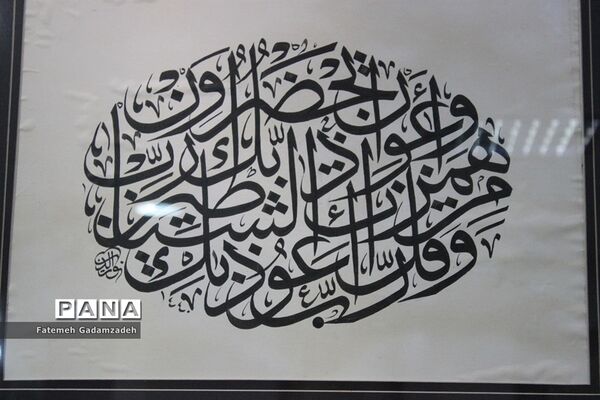 وَقُل رَّبِّ أَعُوذُ بِكَ
مِنْ هَمَزَاتِ الشَّيَاطِينِ
وَأَعُوذُ بِكَ رَبِّ أَن يَحْضُرُونِ
PANA
Fatemeh Gadamzadeh